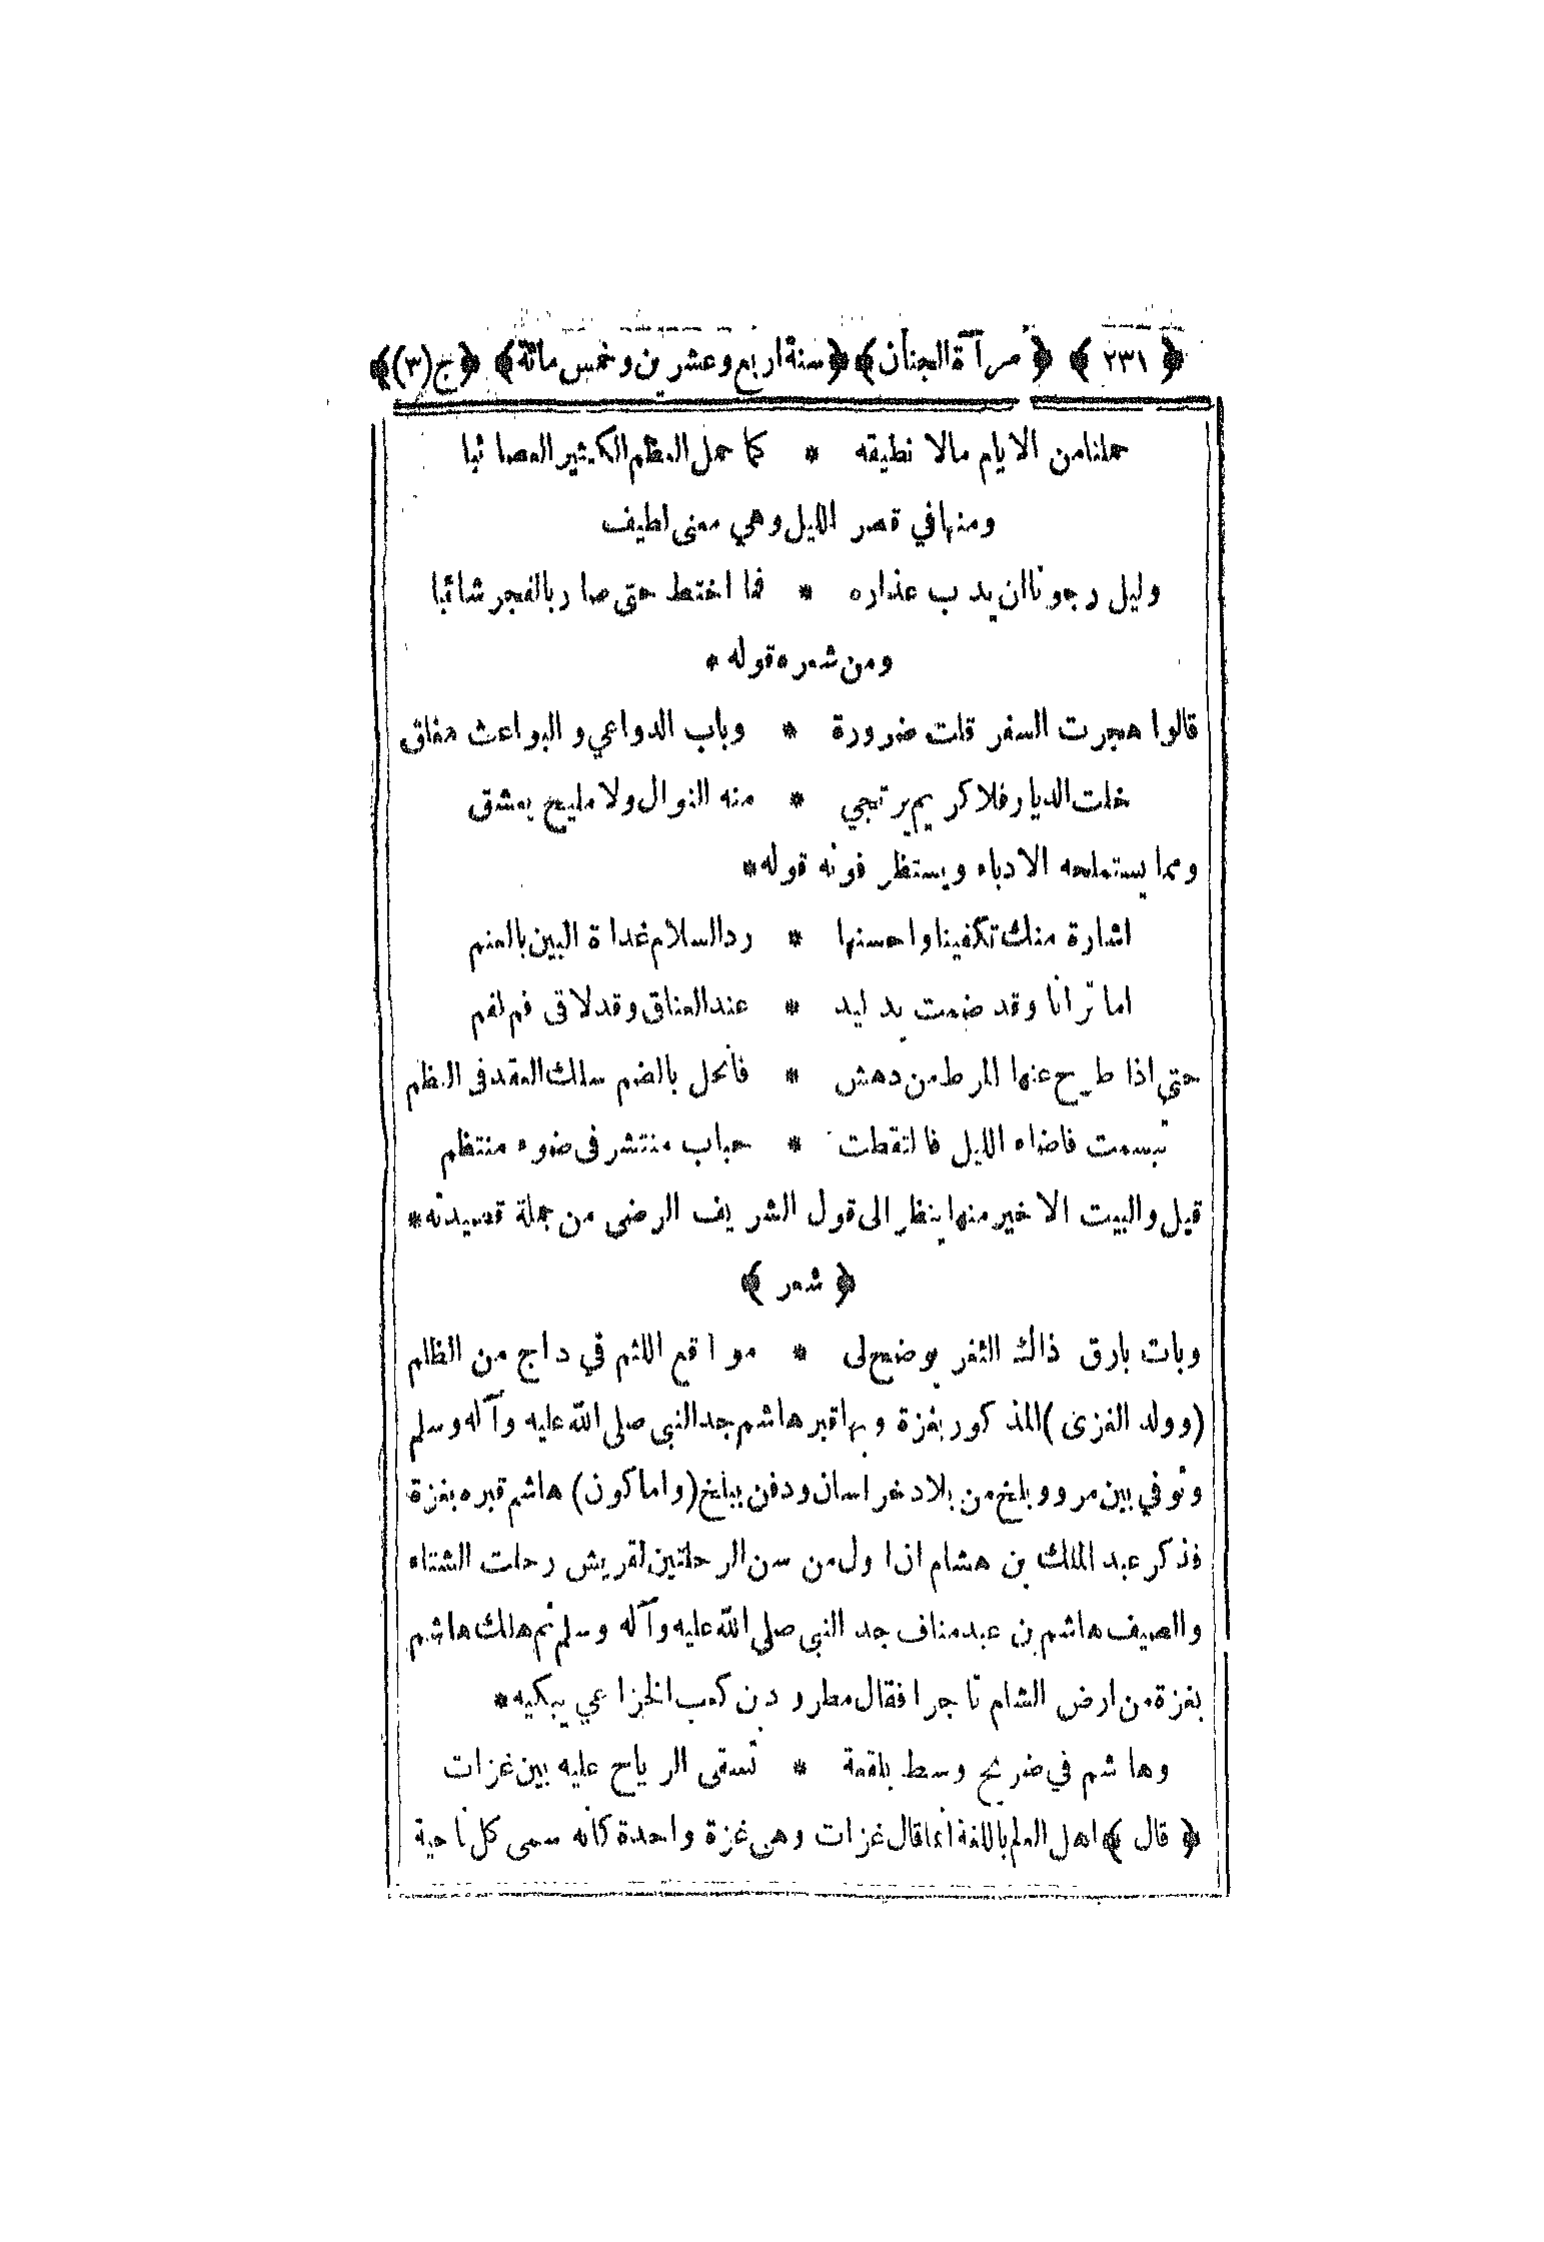 ﴿ ٢٣١ ﴾ ﴿ مرآة الجنان ﴾ ﴿ سنة اربع وعشرين وخمس مائة ﴾ ﴿ ج (٣) ﴾
حملنا من الايام مالا نطيقه * كما حمل العظم الكثير العصائبا
ومنها في قصر الليل وهي معنى لطيف
وليل رجونا ان يدب عذاره * فما اختط حتى صار بالفجر شائبا
ومن شعره قوله *
قالوا هجرت السفر قلت ضرورة * وباب الدواعي والبواعث مغلق
خلت الديار فلا كريم يرتجي * منه النوال ولا مليح يعشق
ومما يستملحه الادباء ويستظرفونه قوله *
اشارة منك تكفينا واحسنها * رد السلام غداة البين بالعنم
اما ترانا وقد ضمت يد ليد * عند العناق وقد لاقى فم لفم
حتى اذا طرح عنها المرط من دهش * فانحل بالضم سلك العقد فى الظم
تبسمت فاضاء الليل فالتقطت * حباب منتشر فى ضوء منتظم
قيل والبيت الاخير منها ينظر الى قول الشريف الرضى من جملة قصيدته *
﴿ شعر ﴾
وبات بارق ذاك الثغر يوضح لى * مواقع اللثم في داج من الظلم
(وولد الغزى) المذكور بغزة وبها قبر هاشم جد النبي صلى الله عليه وآله وسلم
وتوفي بين مرو وبلخ من بلاد خراسان ودفن ببلخ (واما كون) هاشم قبره بغزة
فذكر عبد الملك بن هشام ان اول من سن الرحلتين لقريش رحلت الشتاء
والصيف هاشم بن عبد مناف جد النبي صلى الله عليه وآله وسلم ثم هلك هاشم
بغزة من ارض الشام تاجرا فقال مطرود بن كعب الخزاعي يبكيه *
وهاشم في ضريح وسط بلقعة * تسقى الرياح عليه بين غزات
﴿ قال ﴾ اهل العلم باللغة انما قال غزات وهى غزة واحدة كانه سمى كل ناحية